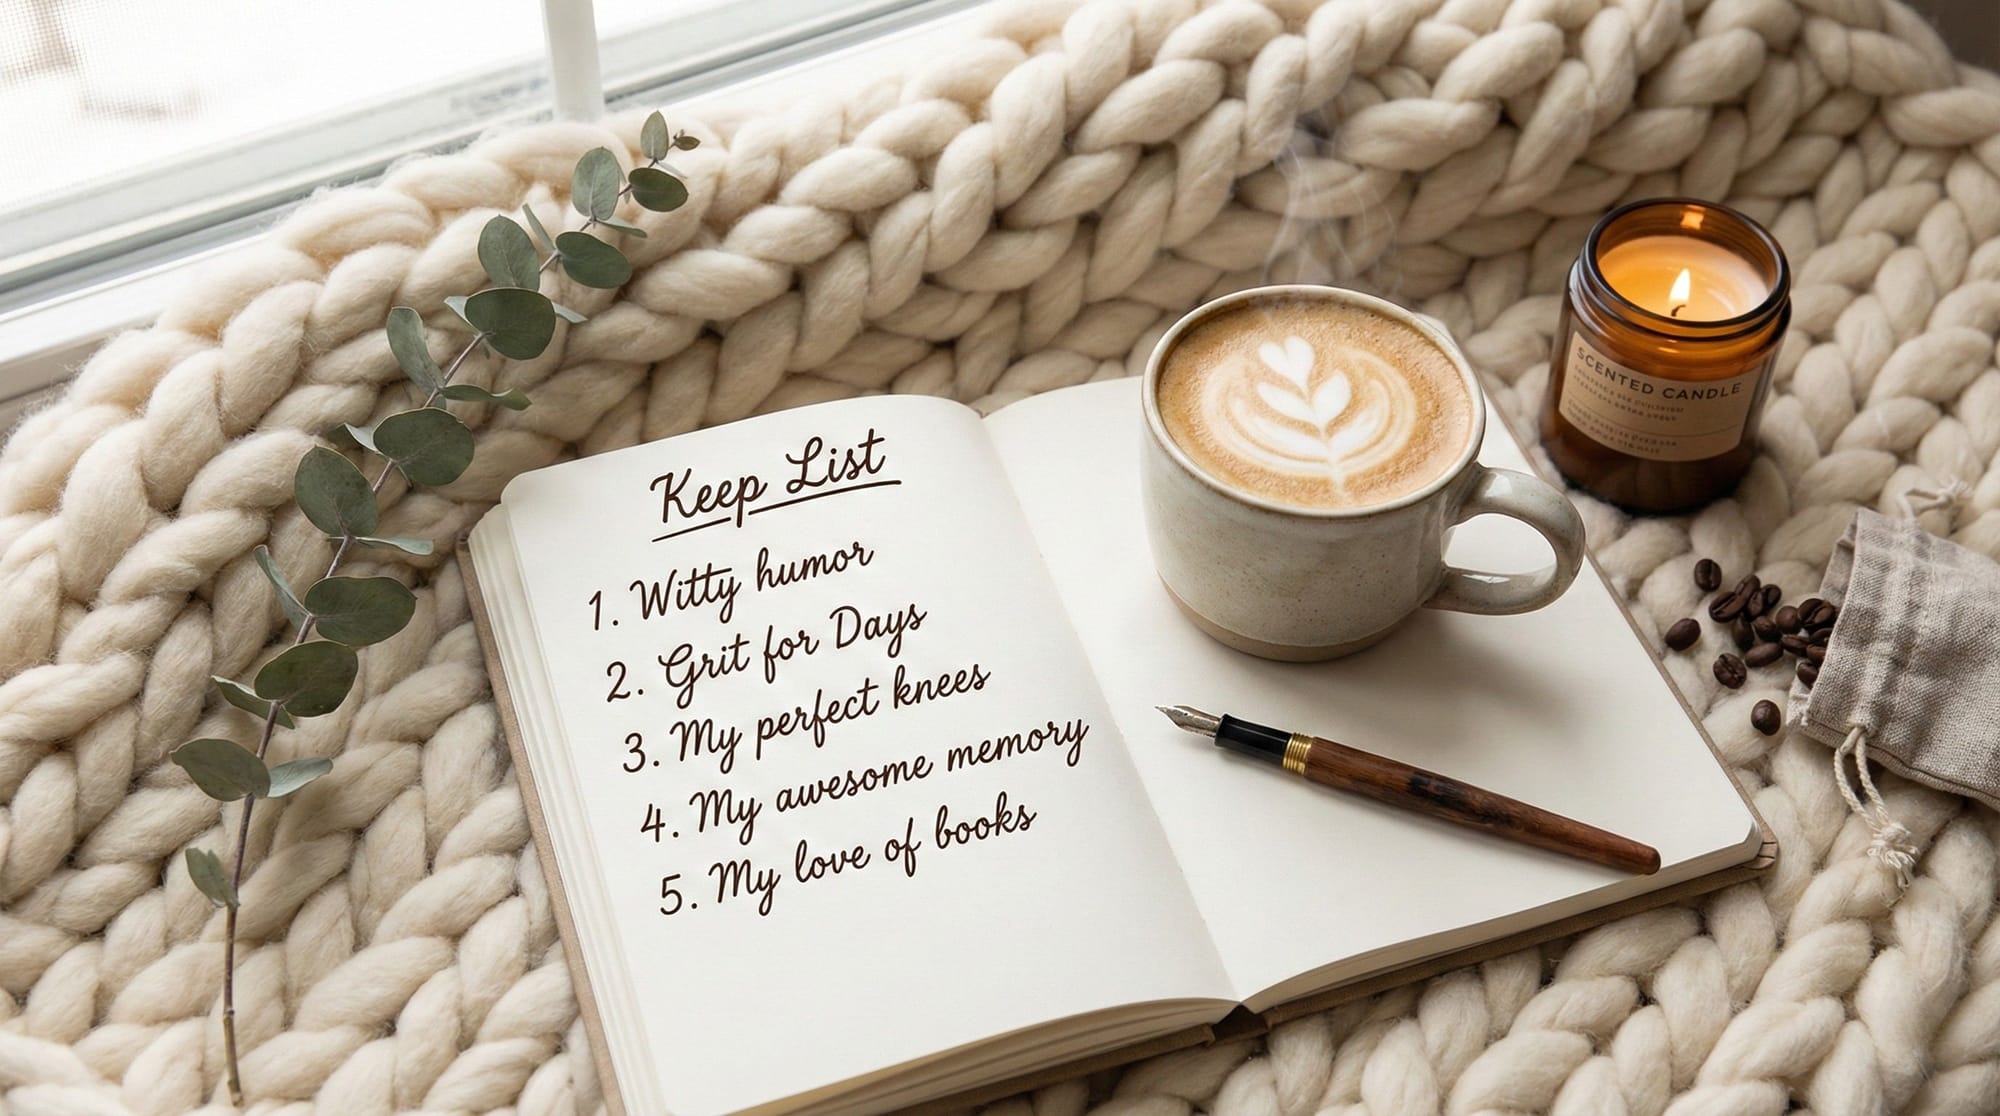 Keep List
1. Witty humor
2. Grit for Days
3. My perfect knees
4. My awesome memory
5. My love of books
SCENTED CANDLE